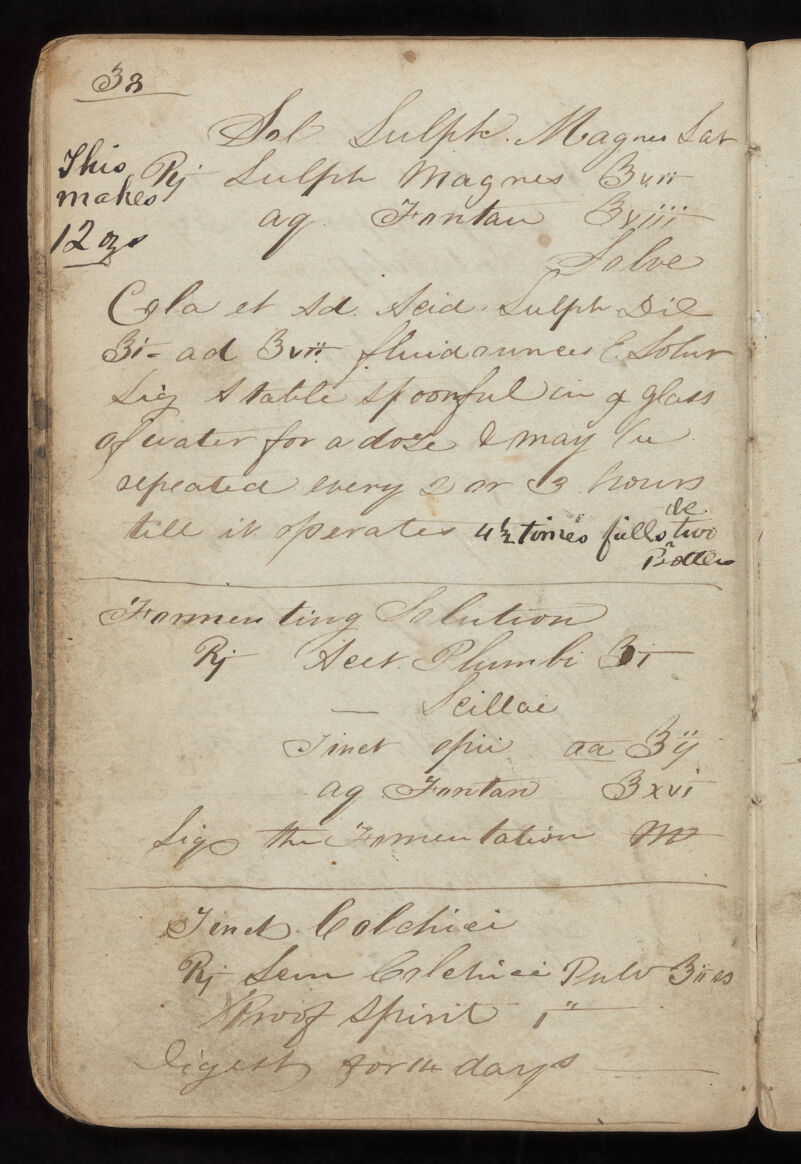 38
Sol Sulph. Magnes Sat
This
makes
12 ozs
Rj Sulph Magnes ℥vii
aq Fontan ℥viii
Solve
Cola et Ad. Acid. Sulph Dil
ʒi- ad ℥vii fluidounces Solut
Sig A table spoonful in a glass
of water for a doze & may be
repeated every 2 or 3 hours
till it operates 4½ times fills the two
Bottles
Fomenting Solution
Rj Acet. Plumbi ℥i
— Scillae
Tinct opii aa ℥ij
aq Fontan ℥xvi
Sig the Fomentation M
Tinct Colchici
Rj Sem Colchici Pulv ℥iiss
Proof Spirit
Digest for 14 days